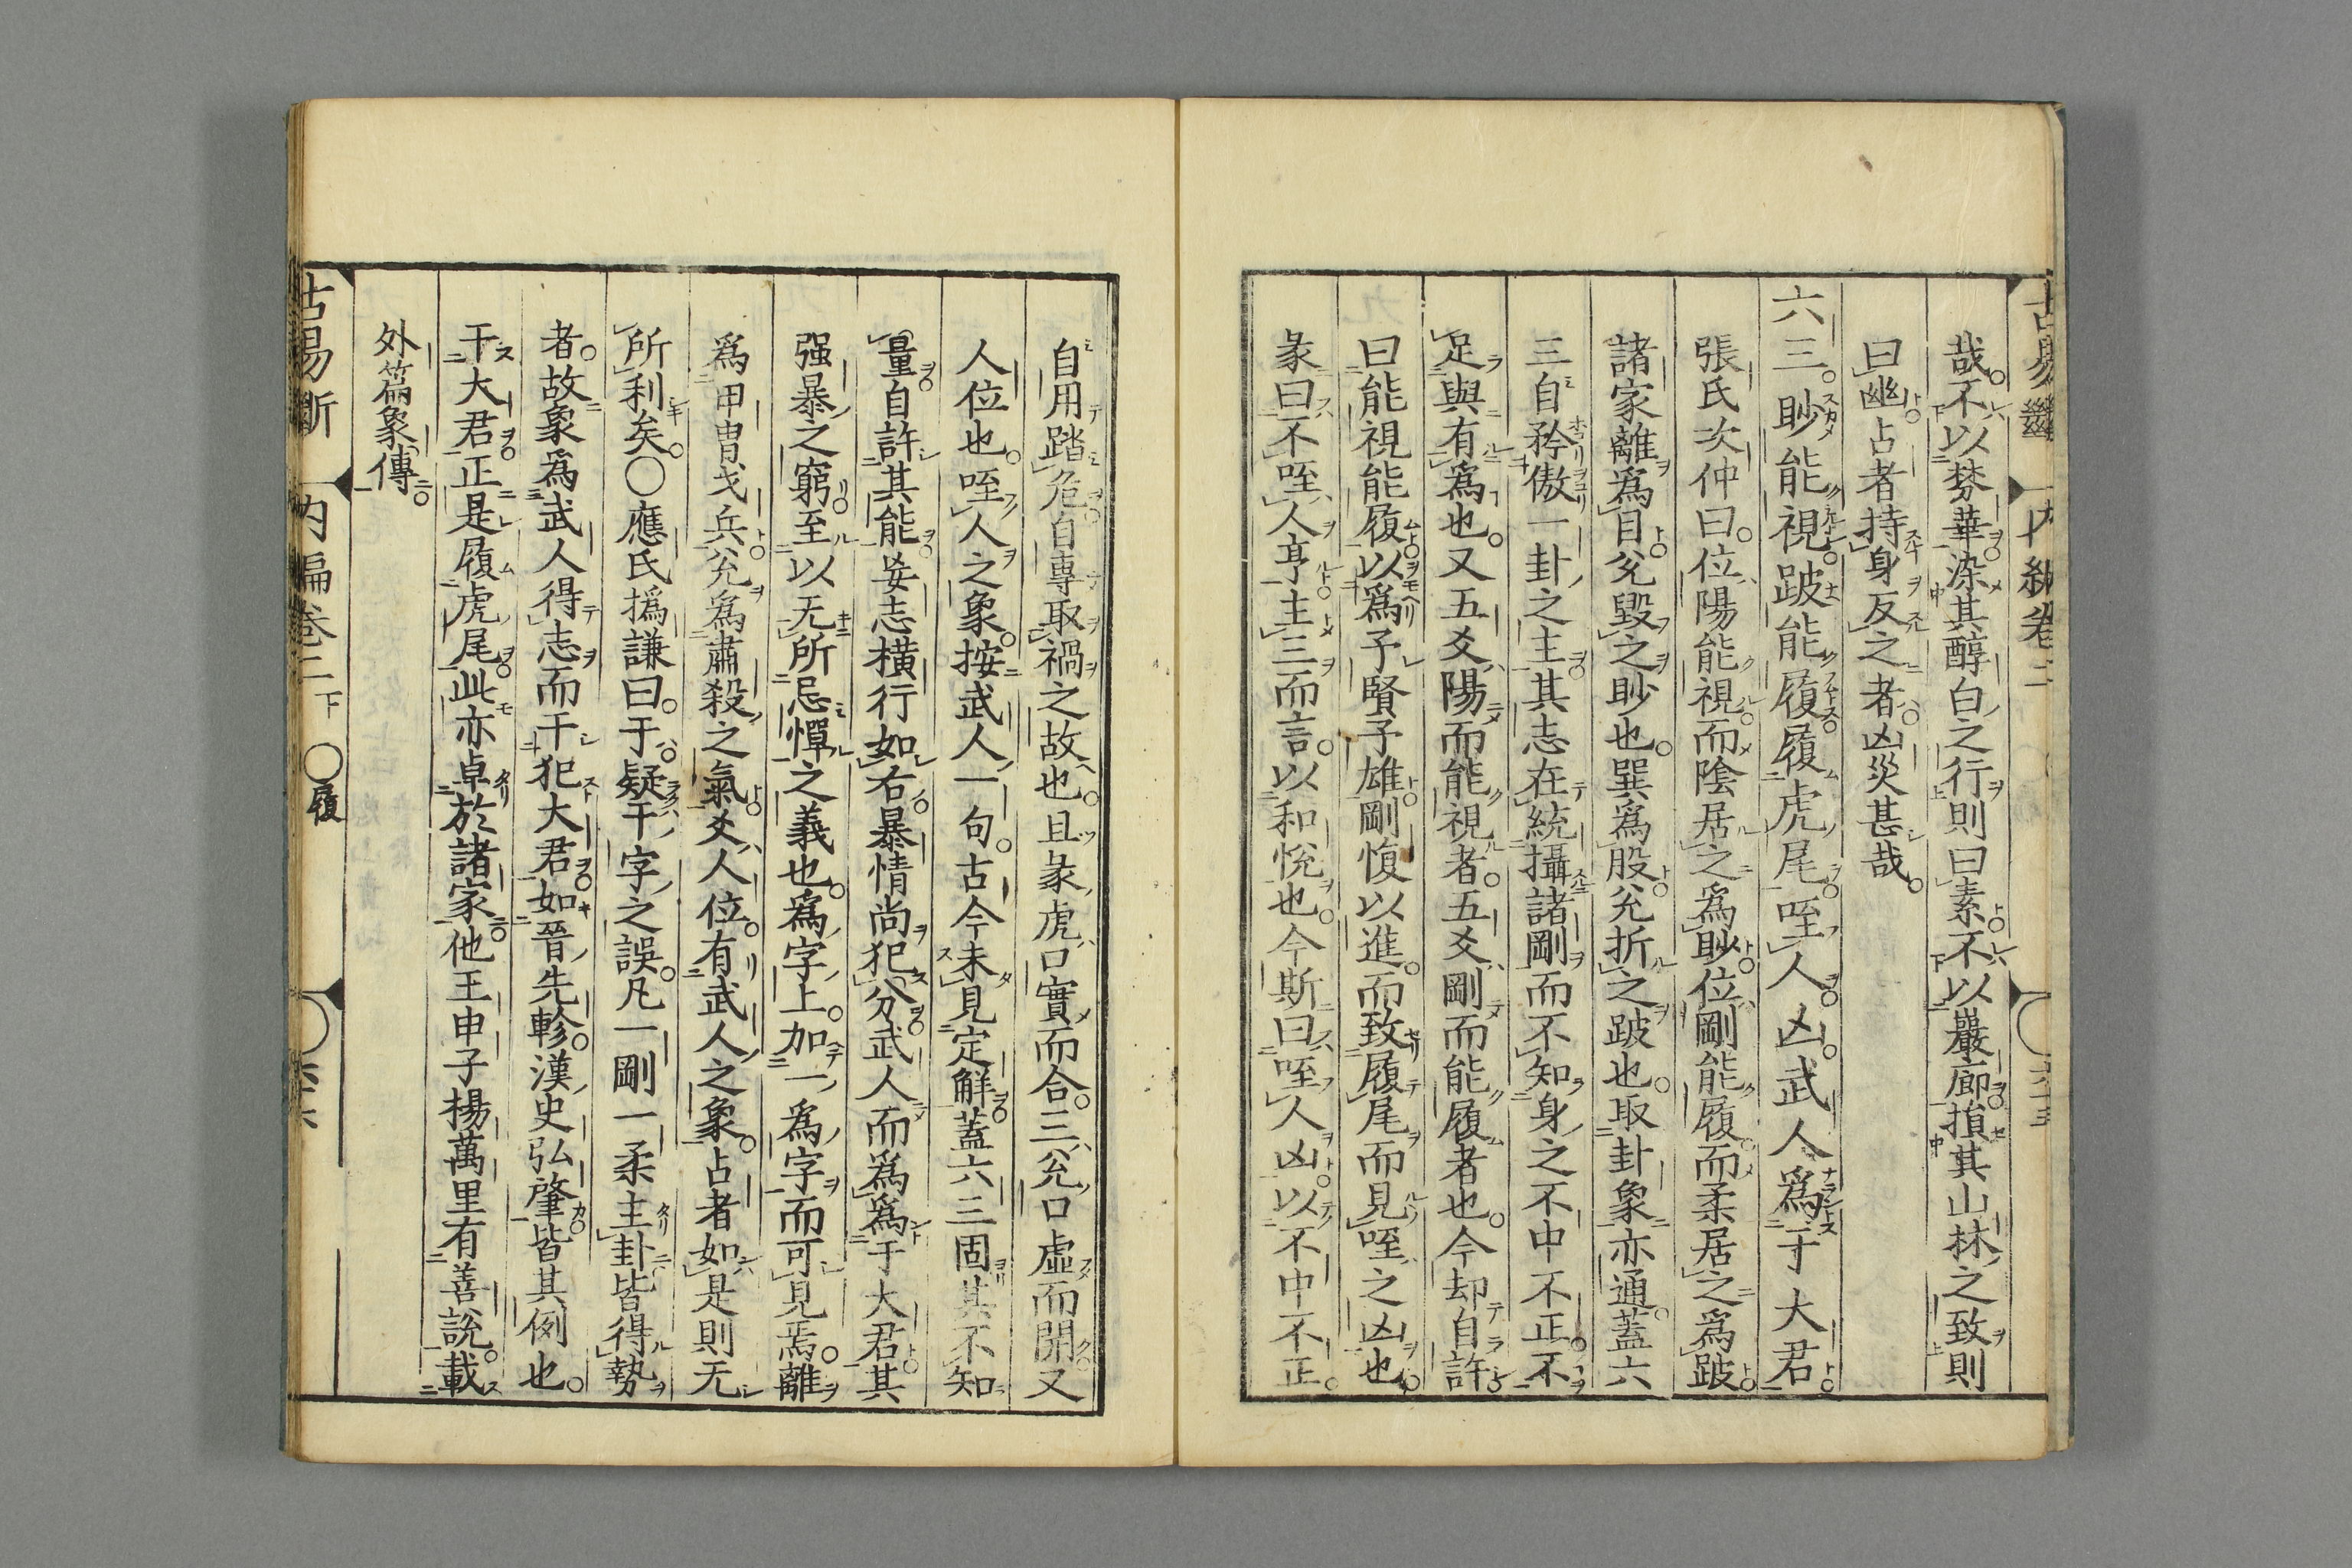 哉不以棼華染其醇白之行則曰素不以巖廊損其山林之致則
曰幽占者持身反之者凶災甚哉
六三眇能視跛能履履虎尾咥人凶武人爲于大君
張氏次仲曰位陽能視而陰居之爲眇位剛能履而柔居之爲跛
諸家離爲目兌毀之眇也巽爲股兌折之跛也取卦象亦通蓋六
三自矜傲一卦之主其志在統攝諸剛而不知身之不中不正不
足與有爲也又五爻陽而能視者五爻剛而能履者也今却自許
曰能視能履以爲予賢予雄剛愎以進而致履尾而見咥之凶也
彖曰不咥人亨主三而言以和悅也今斯曰咥人凶以不中不正
自用踏危自專取禍之故也且彖虎口實而合三兌口虛而開又
人位也咥人之象按武人一句古今未見定解蓋六三固其不知
量自許其能妄志橫行如右暴情尚犯分武人而爲爲于大君其
强暴之窮至以无所忌憚之義也爲字上加一爲字而可見焉離
爲甲冑戈兵兌爲肅殺之氣爻人位有武人之象占者如是則无
所利矣〇應氏撝謙曰于疑干字之誤凡一剛一柔主卦皆得勢
者故象爲武人得志而干犯大君如晉先軫漢史弘肇皆其例也
干大君正是履虎尾此亦卓於諸家他王申子楊萬里有善說載
外篇象傳
古易斷 內編卷二下 〇履